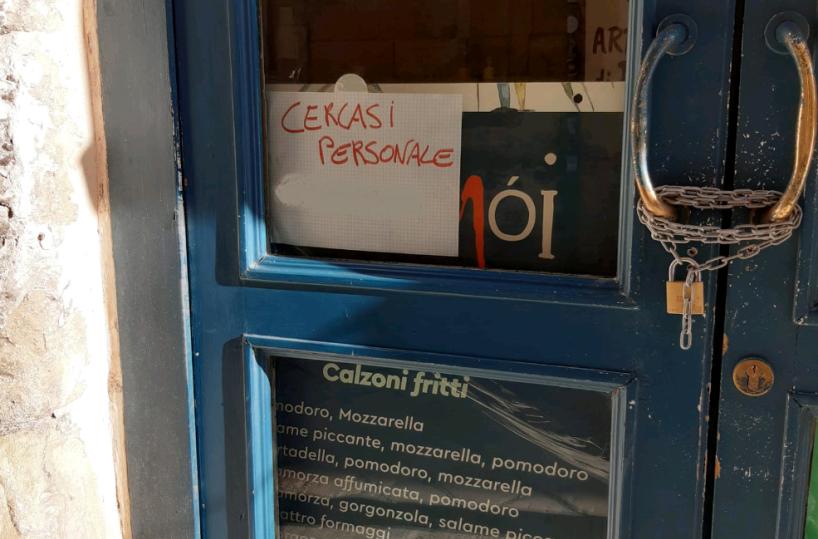 AR
di
CERCASI
PERSONALE
ói
Calzoni fritti
modoro, Mozzarella
ame piccante, mozzarella, pomodoro
rtadella, pomodoro, mozzarella
amorza affumicata, pomodoro
amorza, gorgonzola, salame picc
attro formaggi